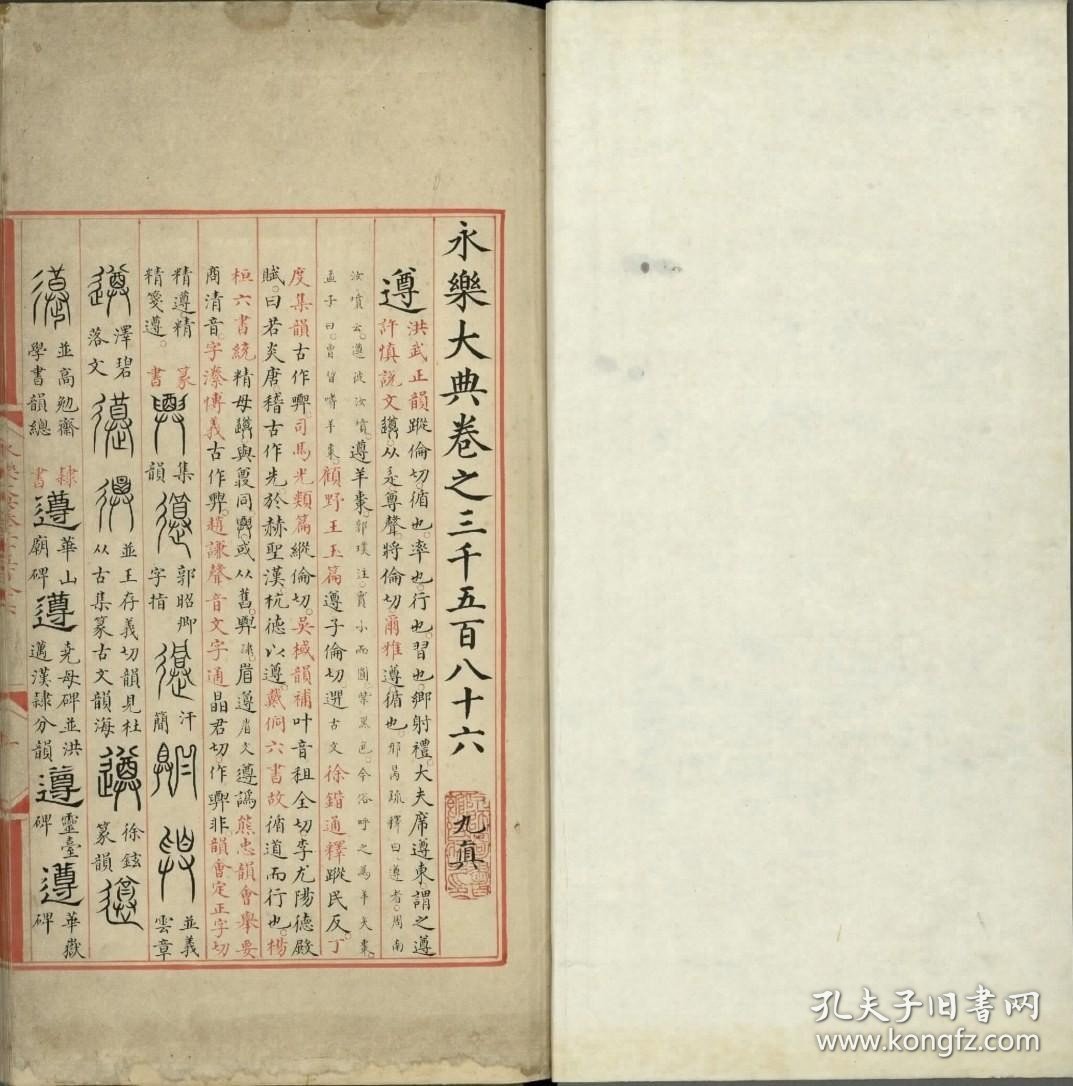 永樂大典卷之三千五百八十六 九真
遵 洪武正韻蹤倫切。循也。率也。行也。習也。鄉射禮。大夫席遵東。謂之遵
許慎說文 从辵尊聲。將倫切。爾雅遵循也。邢昺疏釋曰。遵者。周南
汝墳云。遵彼汝墳。遵羊棗。郭璞注。實小而圓紫黑色。今俗呼之為羊矢棗。
孟子曰。曾皙嗜羊棗。顧野王玉篇遵子倫切。選古文徐鍇通釋蹤民反。丁
度集韻古作𢍱。司馬光類篇縱倫切。吳棫韻補叶音租全切。李尤陽德殿
賦。曰若炎唐。稽古作先。於赫聖漢。杭德以遵。戴侗六書故循道而行也。楊
桓六書統精母 與 同 或从舊 眉遵眉久遵譌熊忠韻會舉要
商清音。字潫博義古作𢍱。趙謙聲音文字通晶君切。作𢍱非韻會定正字切
精遵精
精箋遵。
篆書 集韻 郭昭卿字指 汗簡 並義雲章
澤碧落文 並王存義切韻見杜从古集篆古文韻海 徐鉉篆韻
並高勉齋學書韻總 隸書 遵 華山廟碑 遵 堯母碑並洪邁漢隸分韻 遵 靈臺碑 遵 華嶽碑
孔夫子旧书网
www.kongfz.com